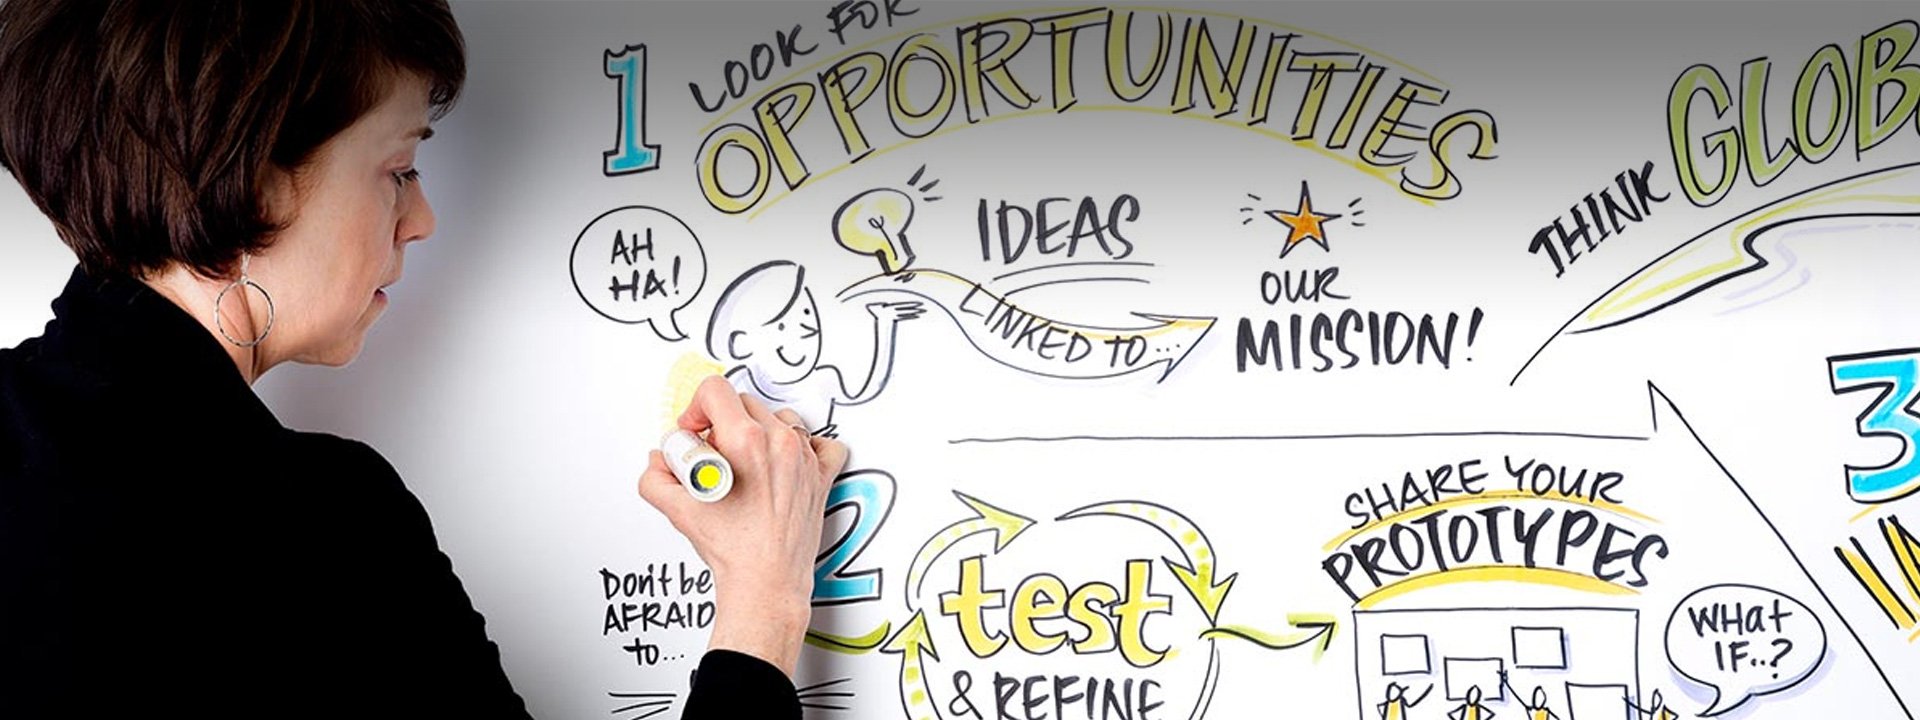 1
LOOK FOR
OPPORTUNITIES
AH
HA!
IDEAS
LINKED TO...
OUR
MISSION!
THINK
2
Don't be
AFRAID
to...
test
& REFINE
SHARE YOUR
PROTOTYPES
WHat
IF..?
3